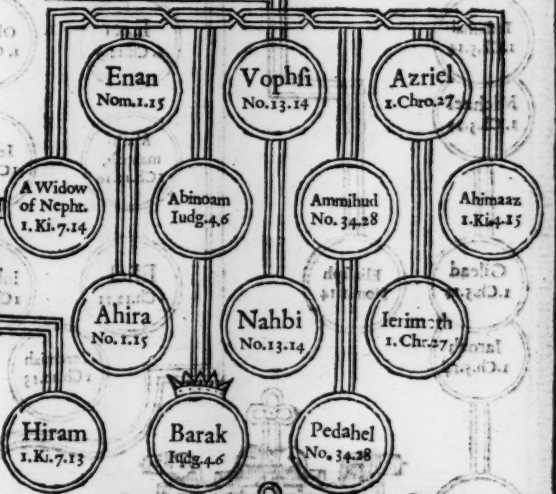 Enan
Nom.1.15
Vophsi
No.13.14
Azriel
1.Chro.27
A Widow
of Nepht.
1.Ki.7.14
Abinoam
Iudg.4.6
Ammihud
No. 34.28
Ahimaaz
1.Ki.4.15
Ahira
No. 1.15
Nahbi
No.13.14
Ierimoth
1.Chr.27
Hiram
1.Ki.7.13
Barak
Iudg.4.6
Pedahel
No. 34.28
Gilead